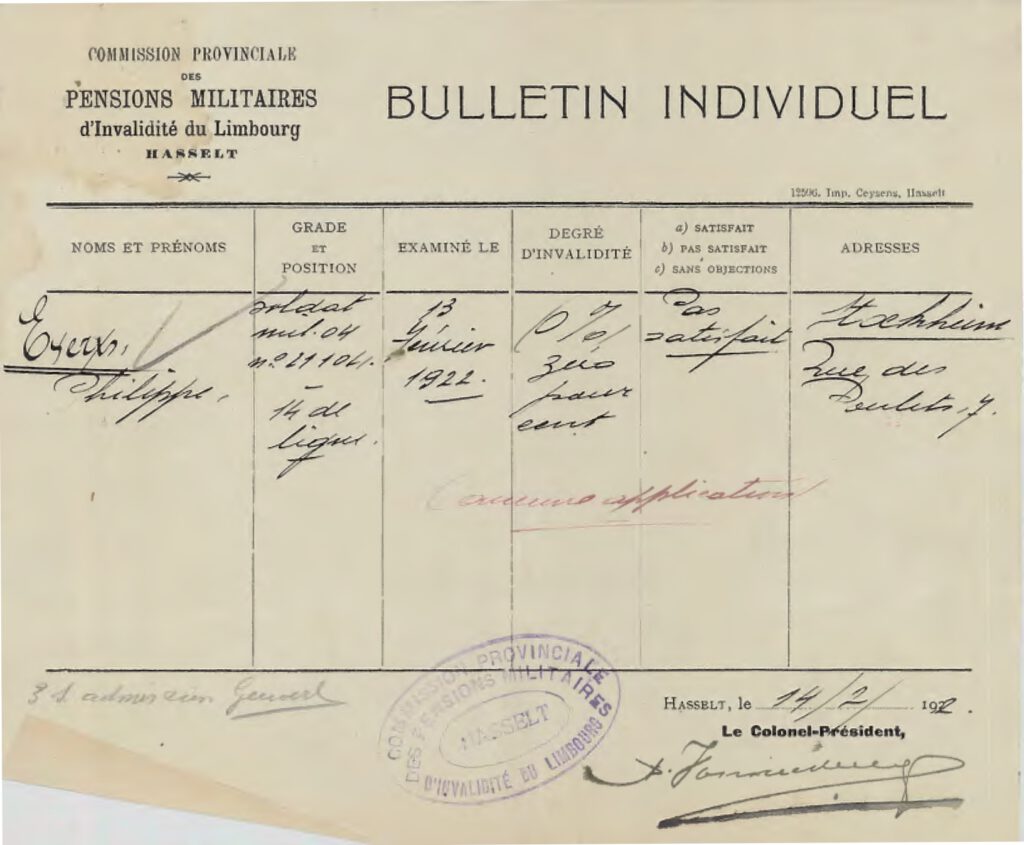 COMMISSION PROVINCIALE
DES
PENSIONS MILITAIRES
d'Invalidité du Limbourg
HASSELT
BULLETIN INDIVIDUEL
12596. Imp. Ceysens, Hasselt
NOMS ET PRÉNOMS
GRADE
ET
POSITION
EXAMINÉ LE
DEGRÉ
D'INVALIDITÉ
a) SATISFAIT
b) PAS SATISFAIT
c) SANS OBJECTIONS
ADRESSES
Philippe,
soldat
mil. 04
nº 21104.
–
14 de
ligne.
13
février
1922.
0%
zéro
pour
cent
Pas
satisfait
Stockheim
Rue des
Poulets, 7.
application
COMMISSION PROVINCIALE
DES PENSIONS MILITAIRES
HASSELT
D'INVALIDITÉ DU LIMBOURG
HASSELT, le 14/2/ 1922.
Le Colonel-Président,